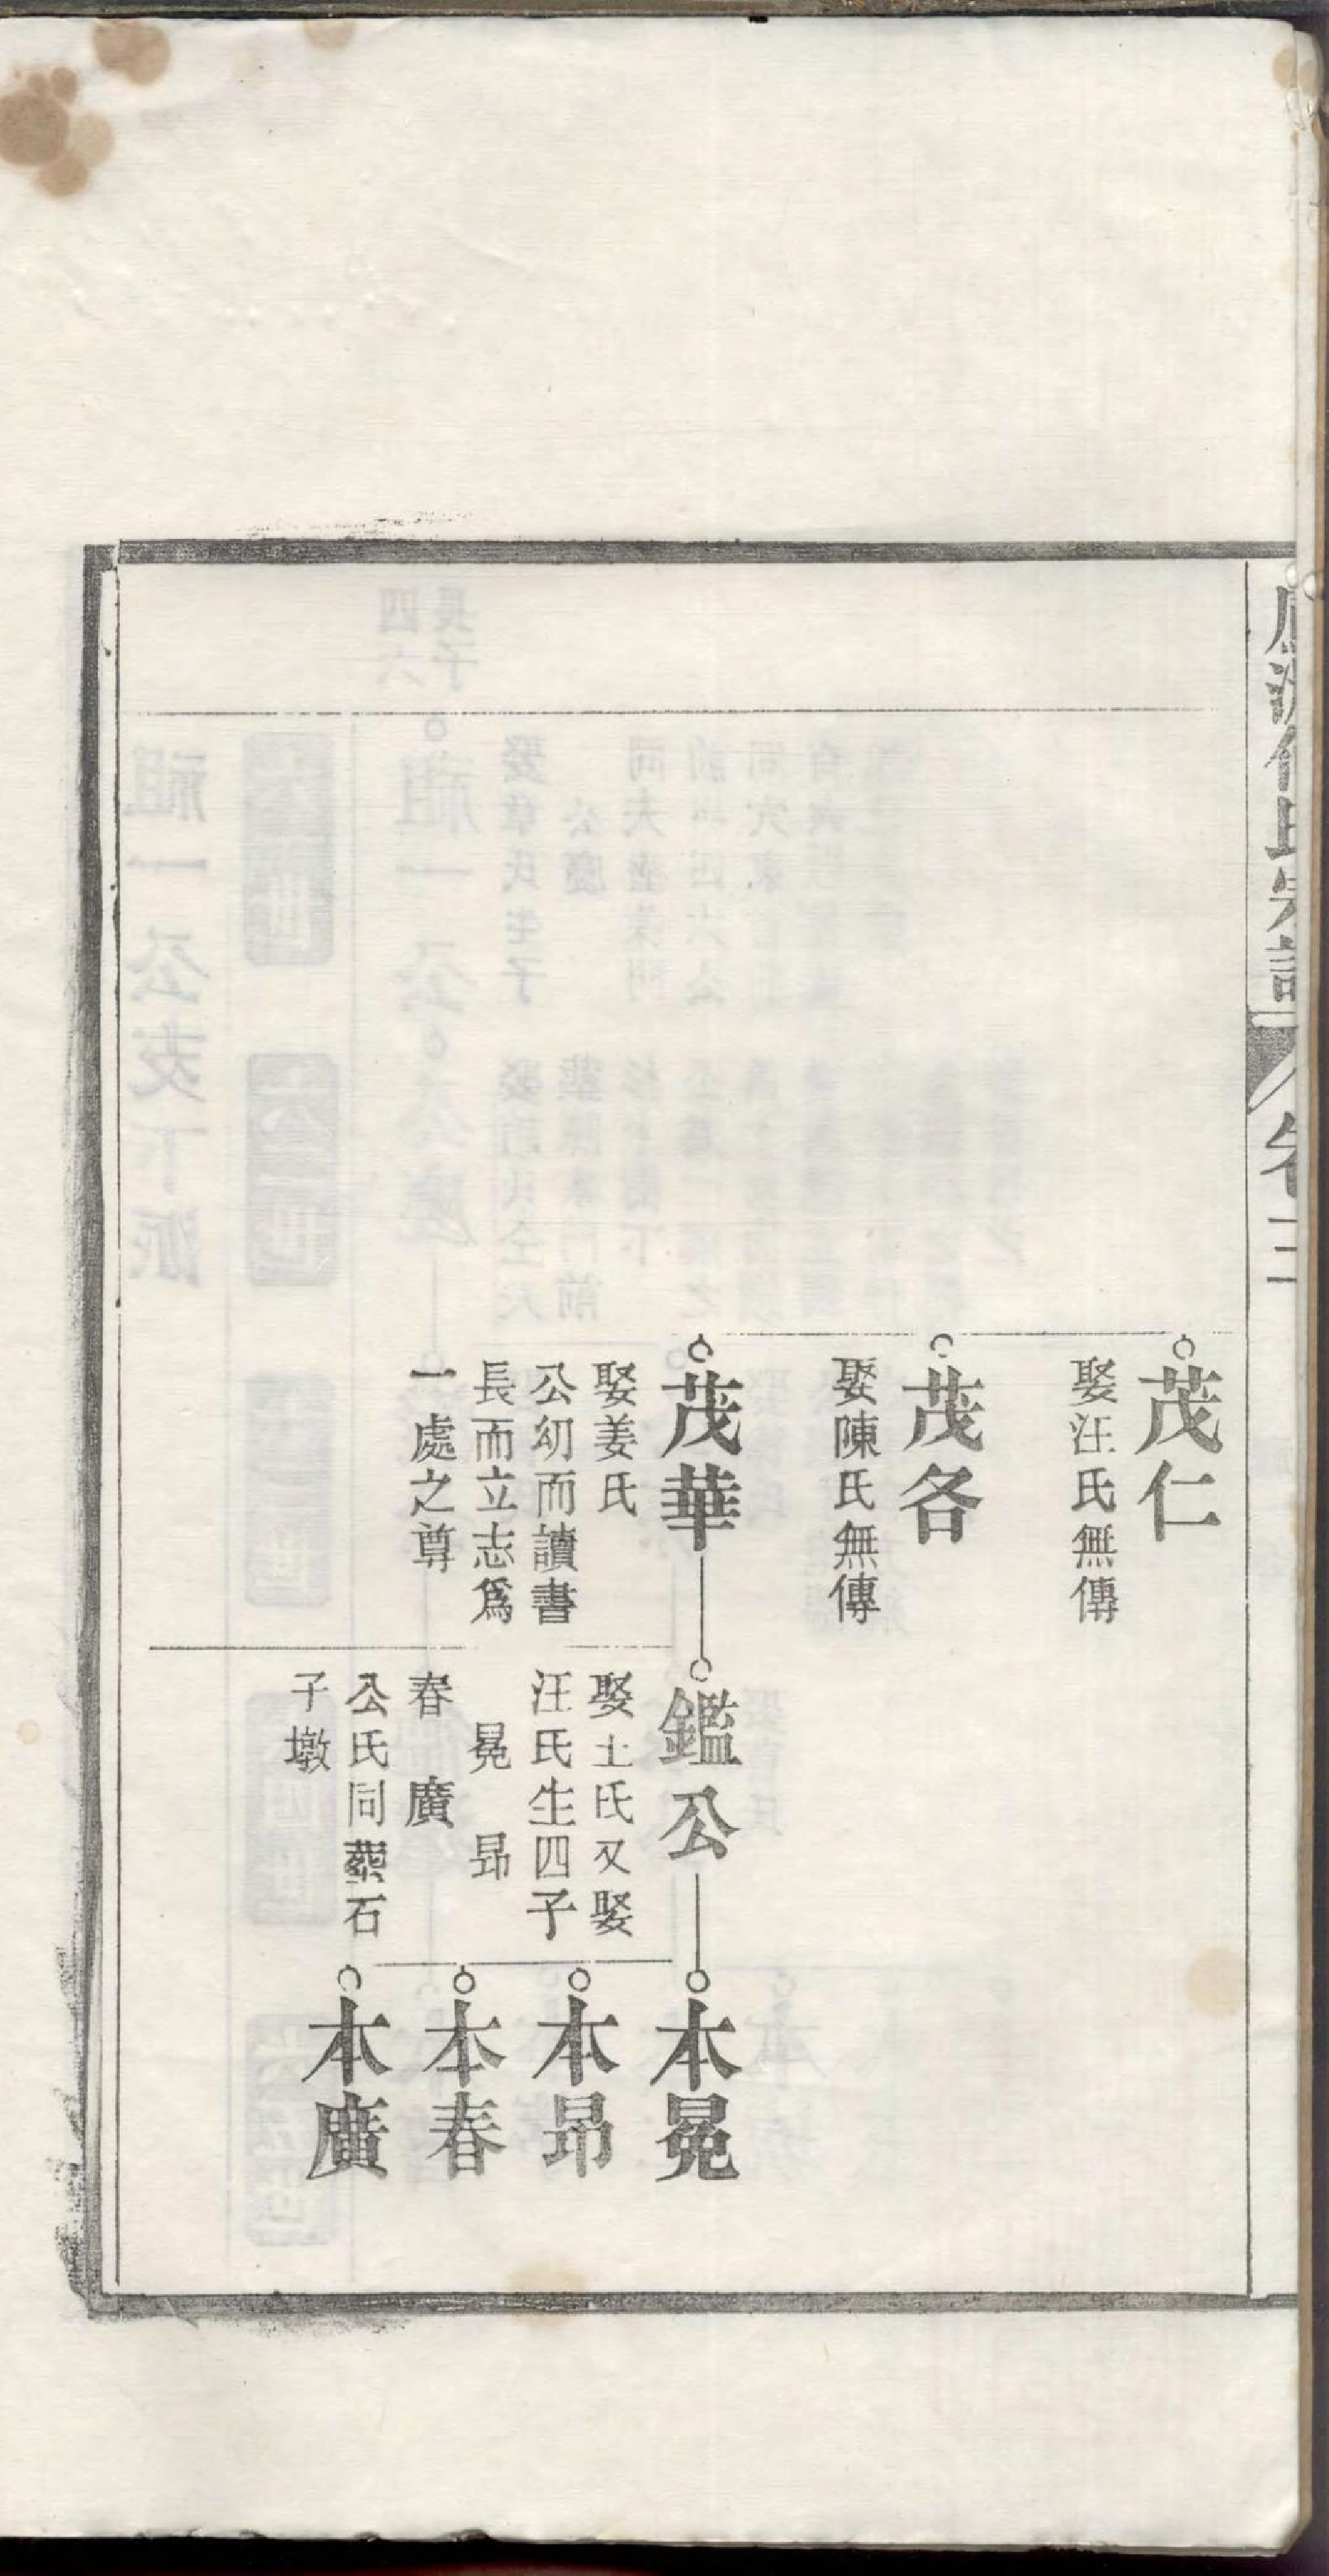 氏宗譜
卷三
茂仁
娶汪氏無傳
茂各
娶陳氏無傳
茂華
娶姜氏
公幼而讀書
長而立志爲
一處之尊
鑑公
娶土氏又娶
汪氏生四子
冕 昂
春 廣
公氏同塟石
子墩
本冕
本昂
本春
本廣